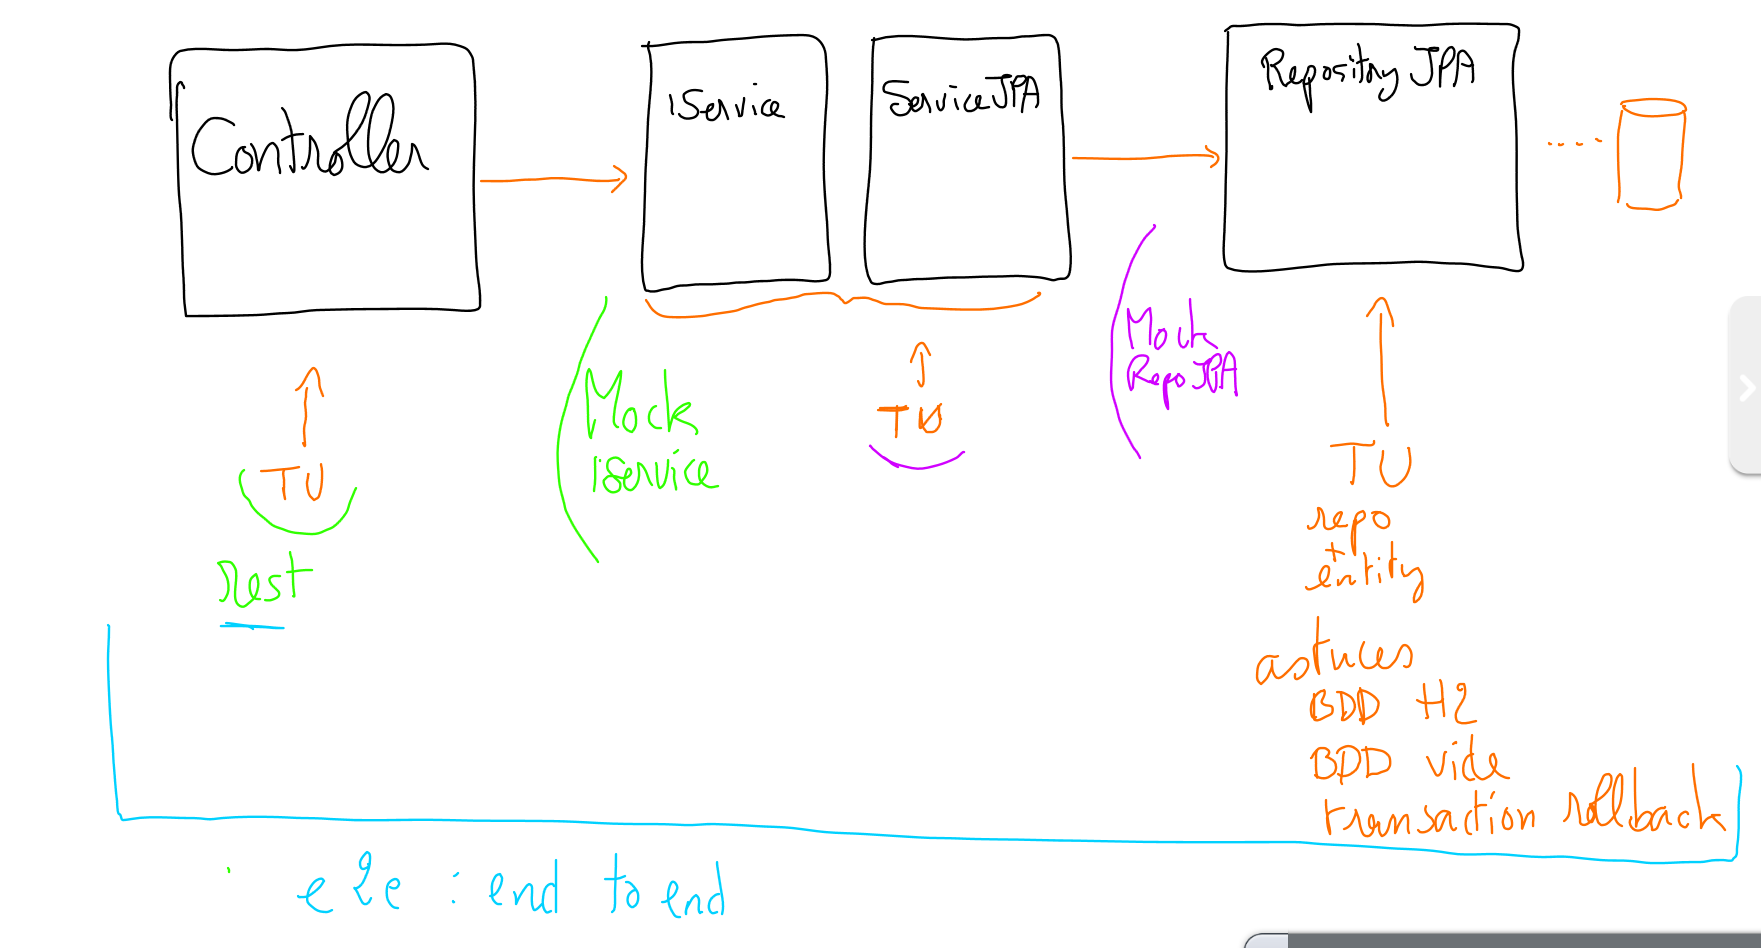 Controller
iService
ServiceJPA
Repository JPA
Mock
iService
Mock
Repo JPA
TU
rest
TU
TU
repo
+
entity
astuces
BDD H2
BDD vide
transaction rollback
e2e : end to end